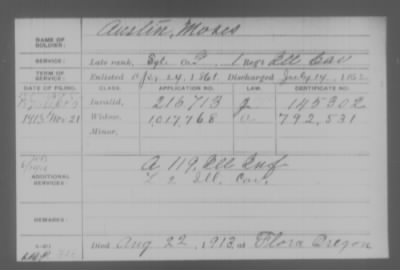 NAME OF SOLDIER: Austin, Moses
SERVICE: Late rank, Co. 1 Reg't Ill Cav
TERM OF SERVICE: Enlisted 1861 Discharged July 14, 1862
DATE OF FILING. CLASS. APPLICATION NO. LAW. CERTIFICATE NO.
Invalid, 216,713 145302
1913 Nov 21 Widow, 1017768 792,531
Minor,
ADDITIONAL SERVICES: A 119, Ill Inf
L 2 Ill. Cav.
REMARKS:
Died Aug 22, 1913, at Flora Oregon